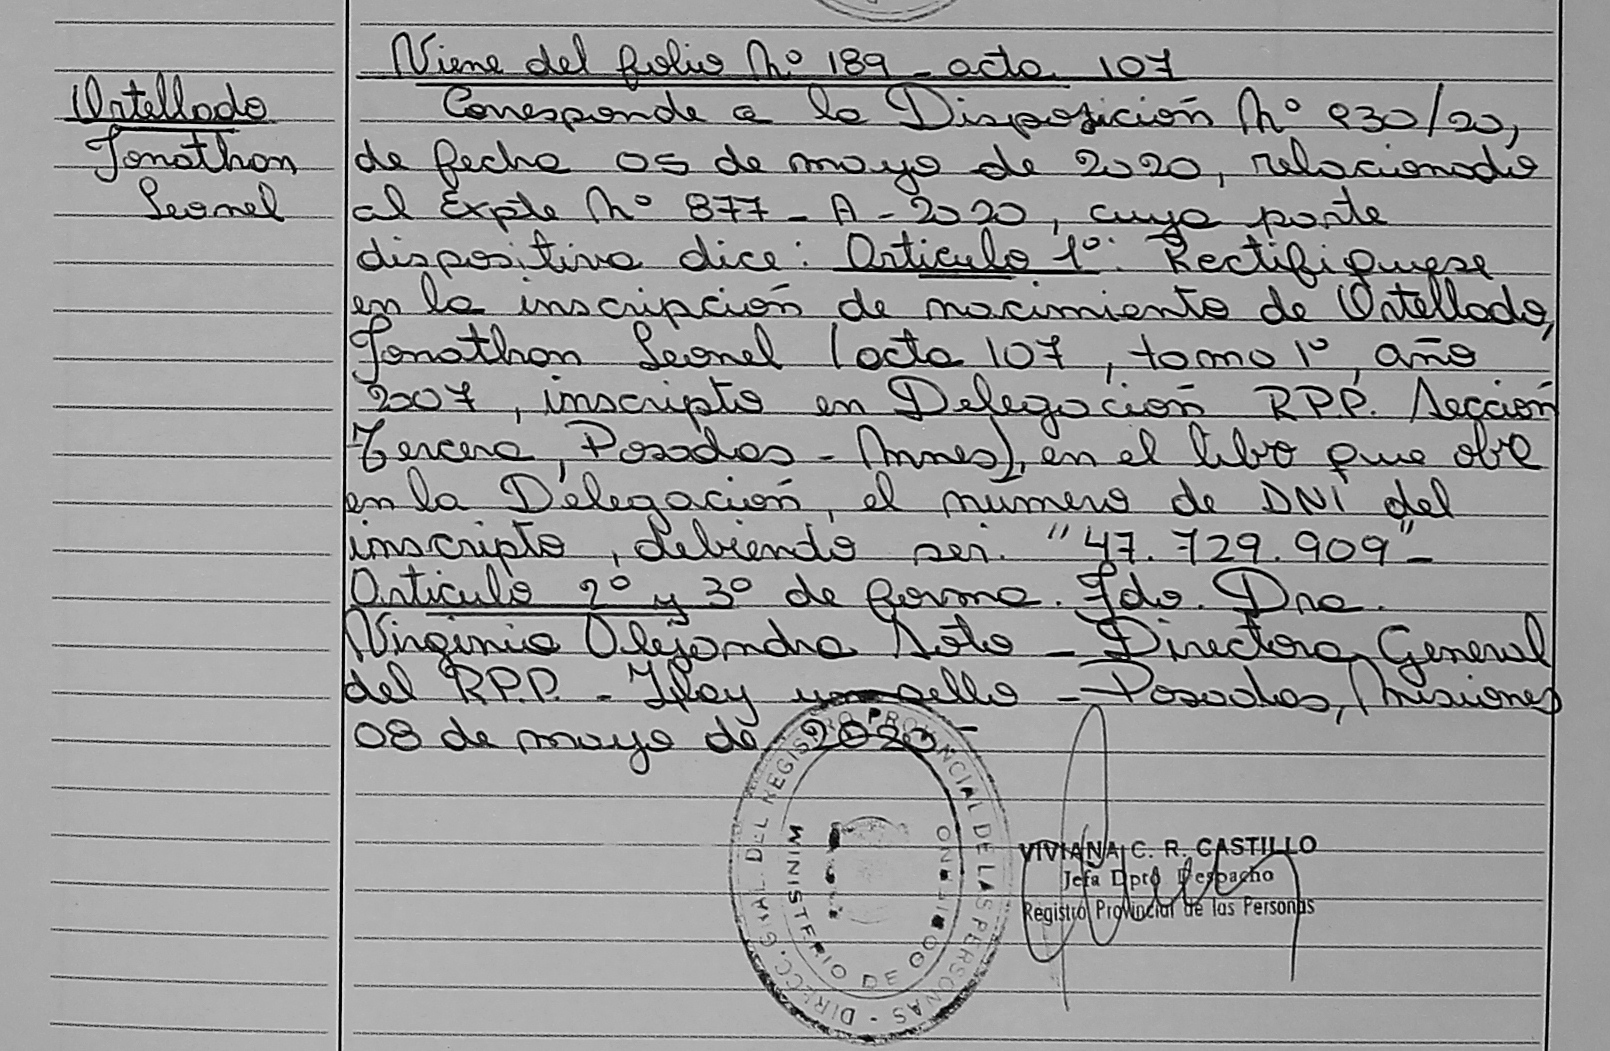 Viene del folio Nº 189 - acta 107
Ortellado
Jonathan
Leonel
Corresponde a la Disposición Nº 930/20,
de fecha 05 de mayo de 2020, relacionado
al Expte Nº 877 - A - 2020, cuya parte
dispositiva dice: Articulo 1º: Rectifiquese
en la inscripción de nacimiento de Ortellado,
Jonathan Leonel (acta 107, tomo 1º, año
2007, inscripto en Delegación RPP. Sección
Tercera, Posadas - Mnes), en el libro que obra
en la Delegación, el numero de DNI del
inscripto, debiendo ser. "47.729.909" -
Articulo 2º y 3º de forma. Fdo. Dra.
Virginia Alejandra Soto - Directora General
del R.P.P. - Hay un sello - Posadas, Misiones
08 de mayo de 2020 -
DIRECC. GRAL. DEL REGISTRO PROVINCIAL DE LAS PERSONAS -
MINISTERIO DE GOBIERNO
VIVIANA C. R. CASTILLO
Jefa Dpto Despacho
Registro Provincial de las Personas